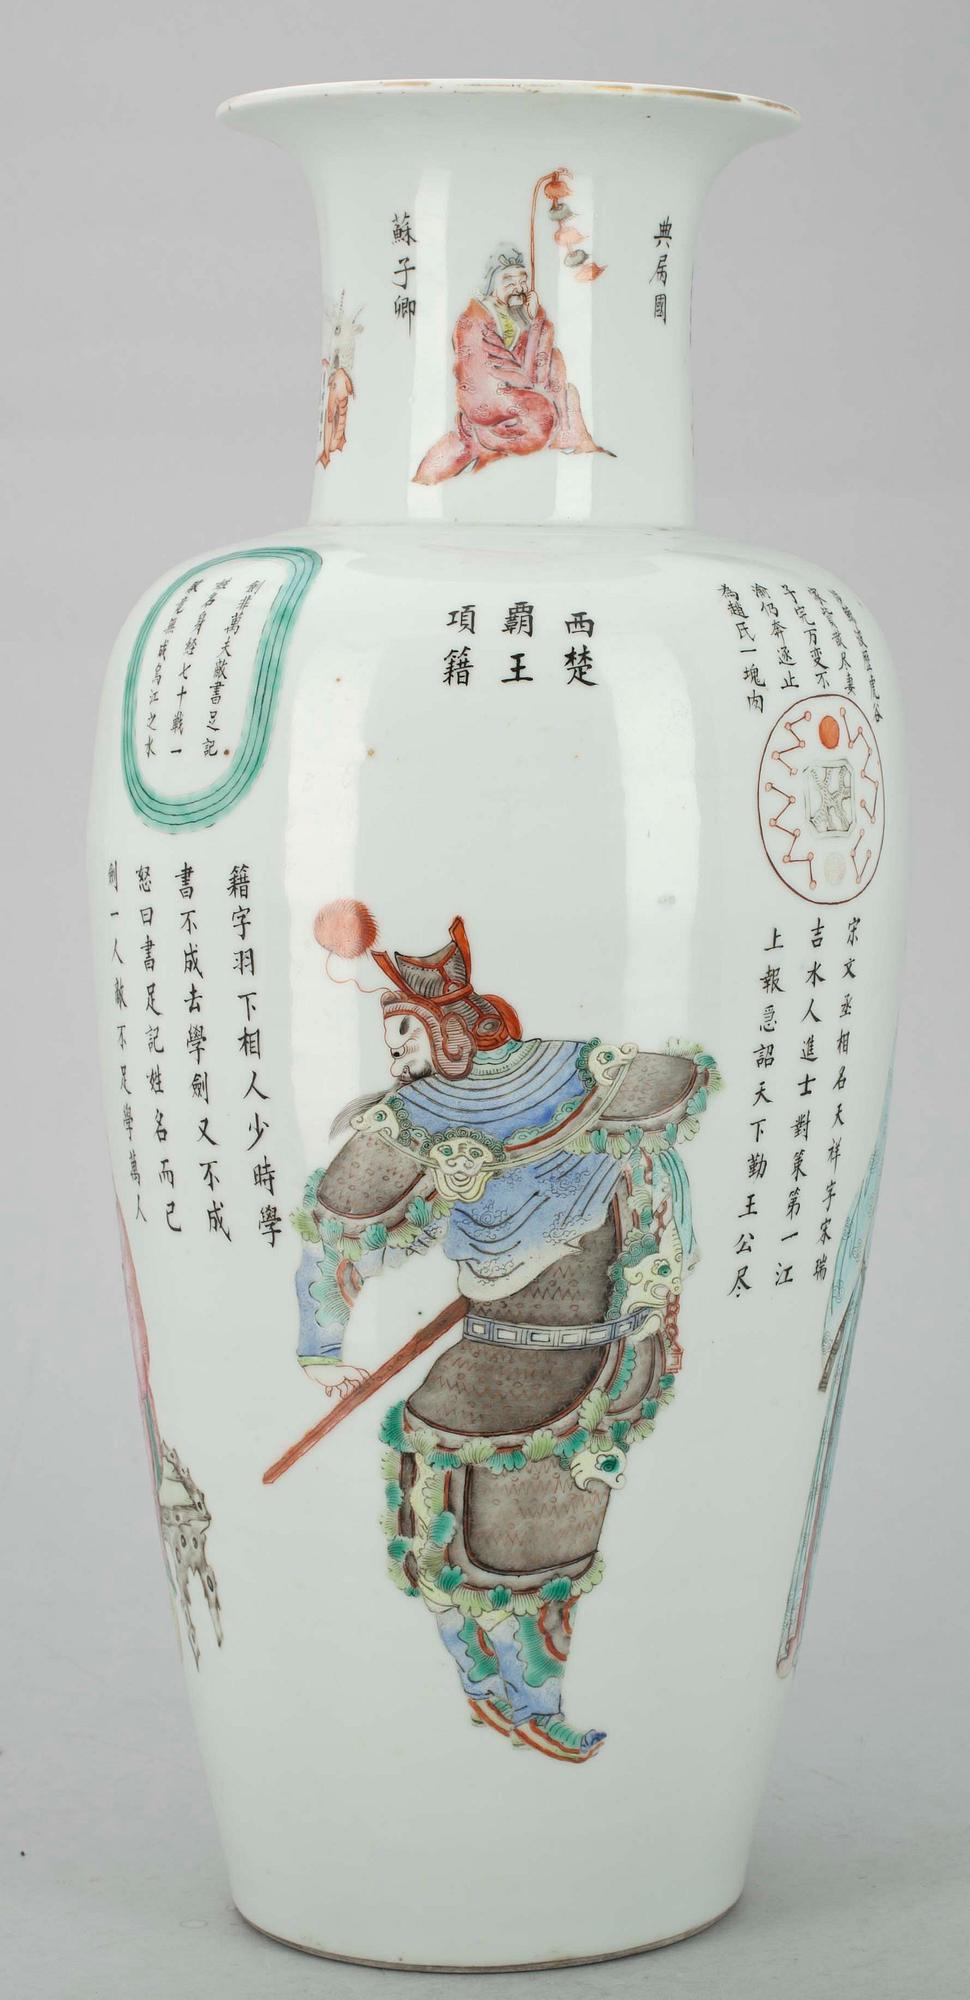 典屬國
蘇子卿
西楚
霸王
項籍
子完万变不
渝仍奔逐止
為趙氏一塊肉
宋文丞相名天祥字宋瑞
吉水人進士對策第一江
上報急詔天下勤王公尽
劍非萬夫敵書足記
姓名身經七十戰一
敗竟無成烏江之水
籍字羽下相人少時學
書不成去學劍又不成
怒曰書足記姓名而已
劍一人敵不足學萬人